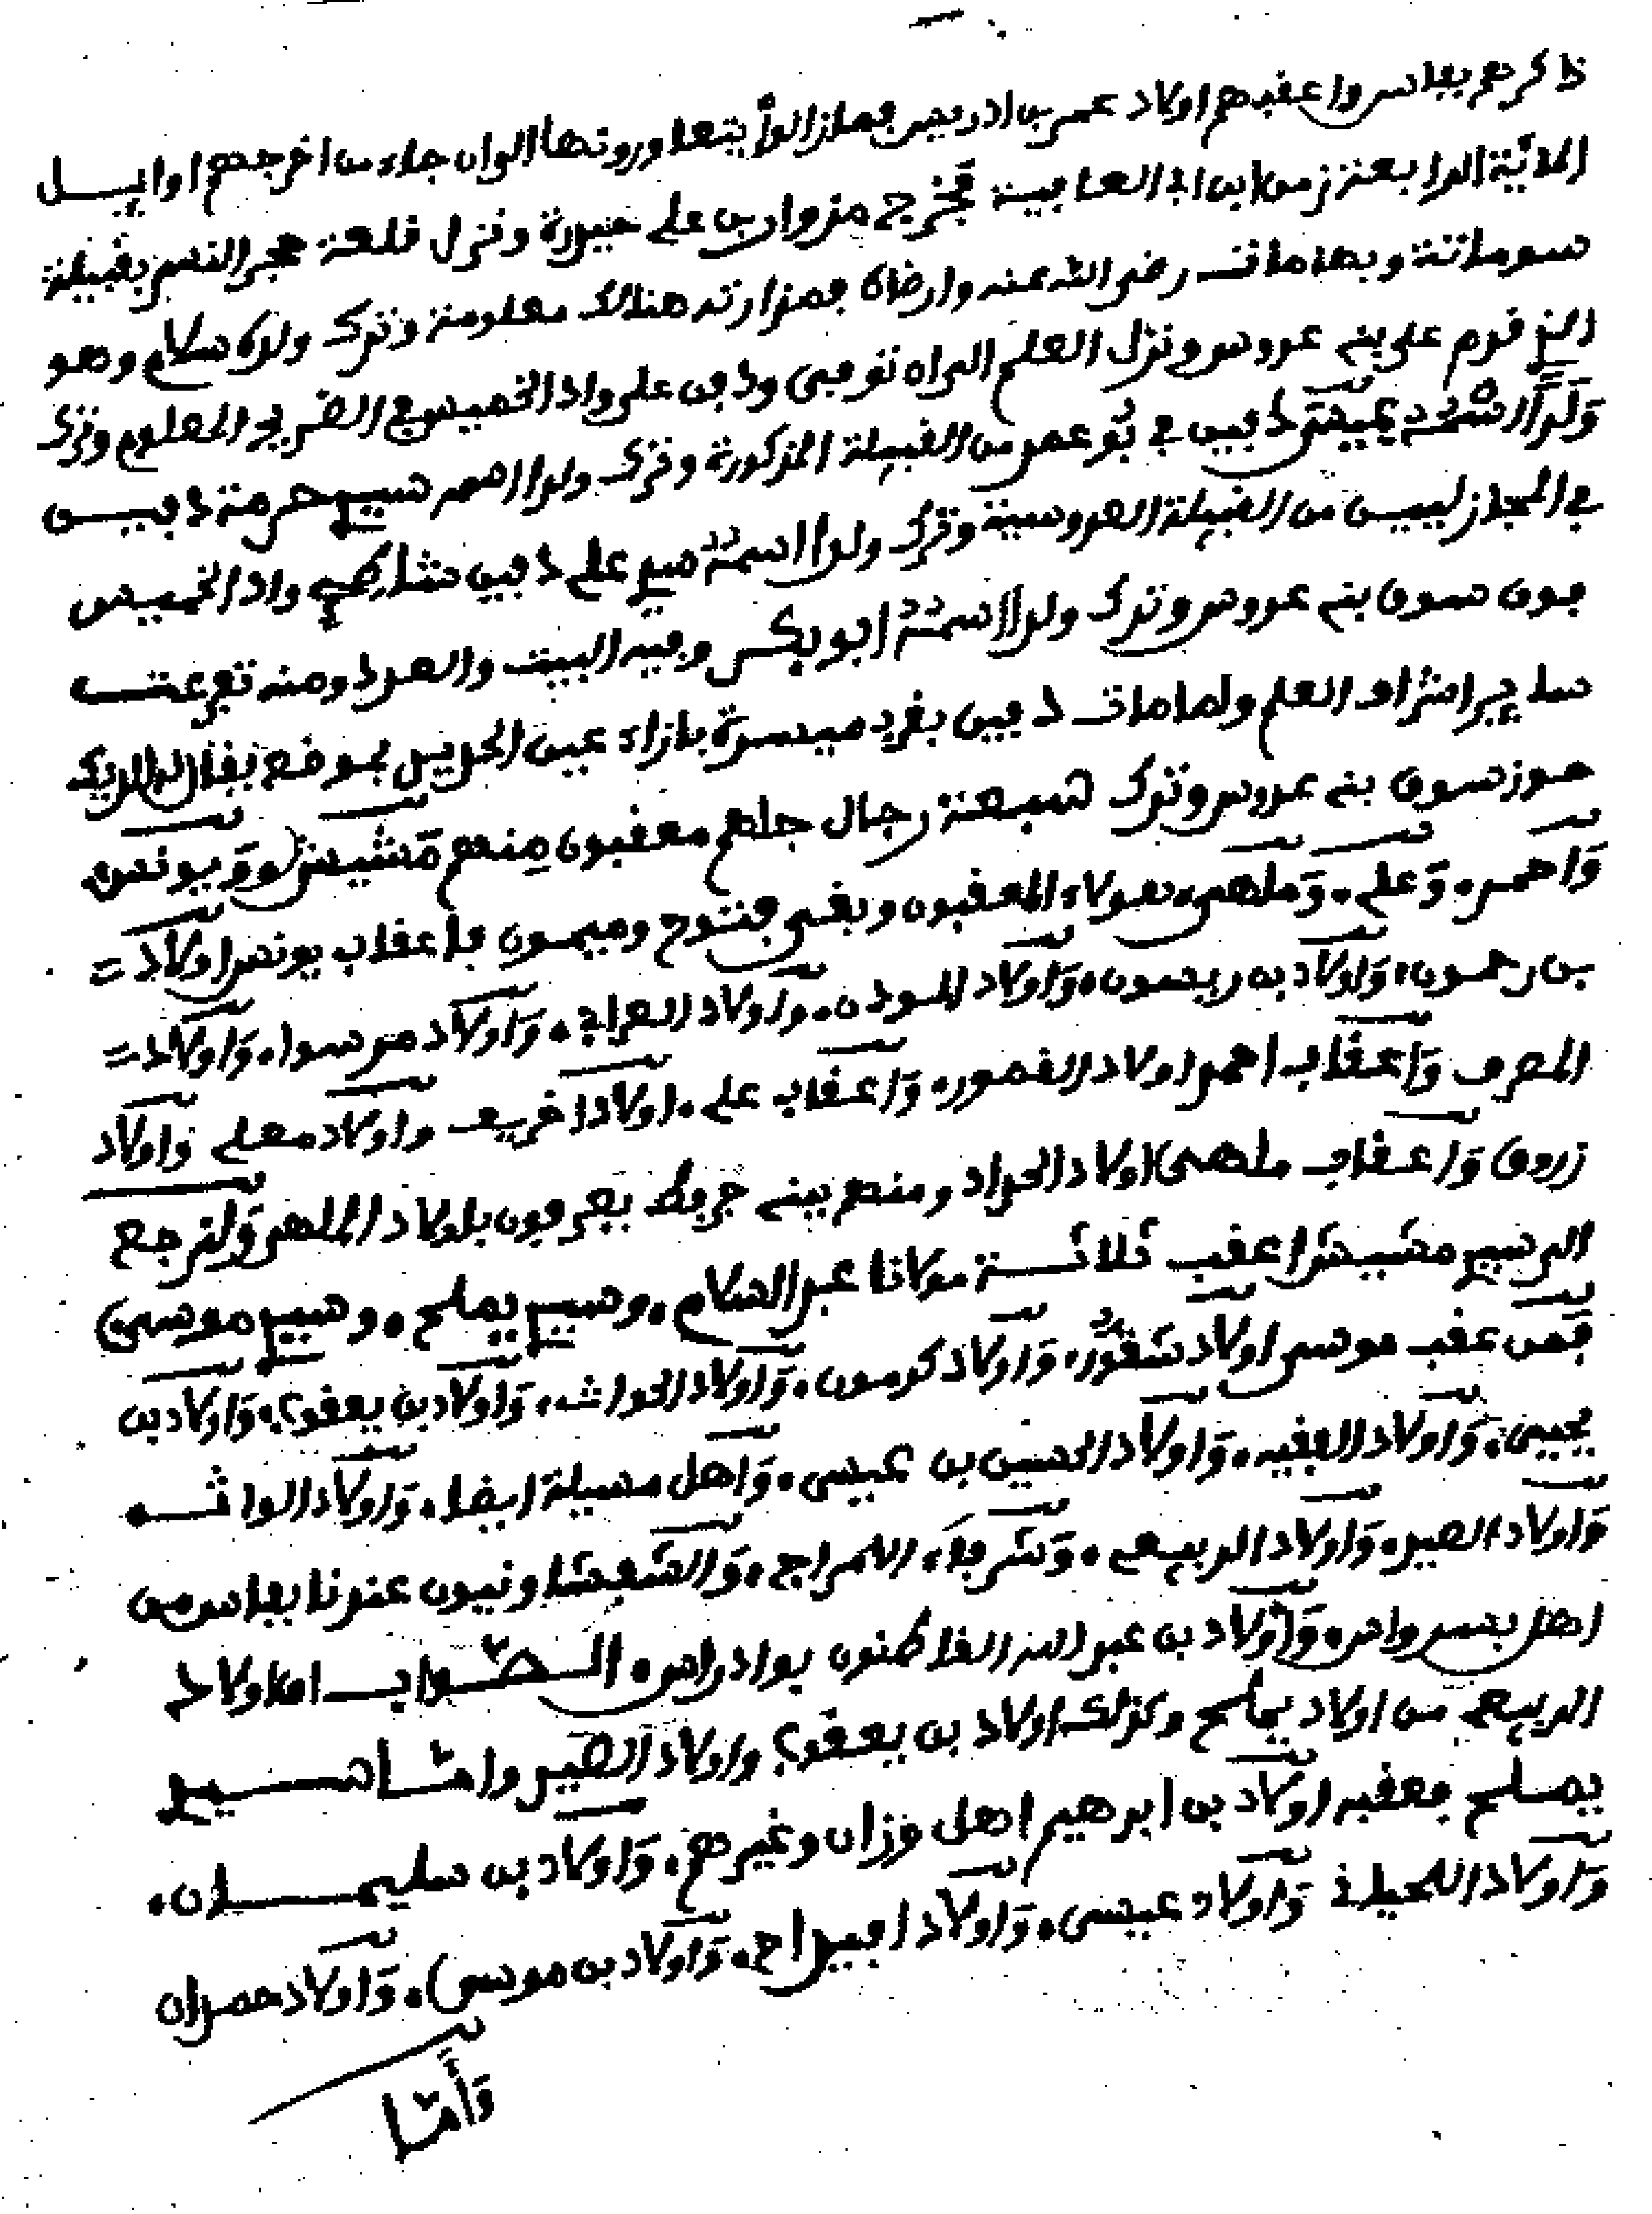 ذكرهم بفاس واعقبهم اولاد عمر بن ادريس فما زالوا يتعاورونها الى ان جاء من اخرجهم اوايل
المائة الرابعة زمن ابن ابي العافية فخرج مزوار بن علي حيدرة ونزل قلعة حجر النسر بقبيلة
سوماتة وبها مات رضي الله عنه وارضاه فمزارته هنالك معلومة وترك ولده سلام وهو
الذي قدم على بني عروس ونزل العلم الى ان توفي ودفن على واد الخميس في الضريح المعلوم وترك
ولدا اسمه عيسى دفين في بو عمر من القبيلة المذكورة وترك ولدا اسمه سيدي حرمة دفين
في المجازليين من القبيلة العروسية وترك ولدا اسمه سيدي علي دفين واد الخميس
فوق سوق بني عروس وترك ولدا اسمه ابو بكر وفيه البيت والعدد ومنه تفرعت
ساير اشراف العلم ولما مات دفين بقرب ميسرة بازاء عين الحديد بموضع يقال له الديك
حوز سوق بني عروس وترك سبعة رجال جلهم معقبون منهم مشيش ويونس
واحمد، وعلي، وملهى، هؤلاء المعقبون وبقي فتوح وميمون فاعقاب يونس اولاد =
بن رحمون، واولاد بن ريسون، واولاد المودن، واولاد مرسوا، واولاد =
المحرف واعقاب احمد اولاد القمور، واعقاب علي، اولاد اخريف واولاد معلى واولاد
زروق واعقاب ملهى اولاد الحراد ومنهم ببني جرفط يعرفون باولاد الملهى ولنرجع
الى سيدي مشيش اعقب ثلاثة مولانا عبد السلام، وسيدي يملح، وسيدي موسى
فمن عقب موسى اولاد شقور، واولاد كرمون، واولاد الحواث، واولاد بن يعقوب، واولاد بن
يحيى، واولاد الفقيه، واولاد الحسين بن عيسى، واهل مسيلة ايضا، واولاد الواث
واولاد الصير، واولاد الربيع، وشرفاء اللمراج، والشفشاونيون عندنا بفاس من
اهل بيت واحد، واولاد بن عبد الله القاطنون بوادراس، الصواب ان اولاد
الربيع من اولاد يملح وكذلك اولاد بن يعقوب واولاد الصير واما سيدي
يملح فعقبه اولاد بن ابرهيم اهل وزان وغيرهم، واولاد بن سليمان،
واولاد اللحياني واولاد عيسى، واولاد افيلاح، واولاد بن موسى، واولاد حمدان
واما